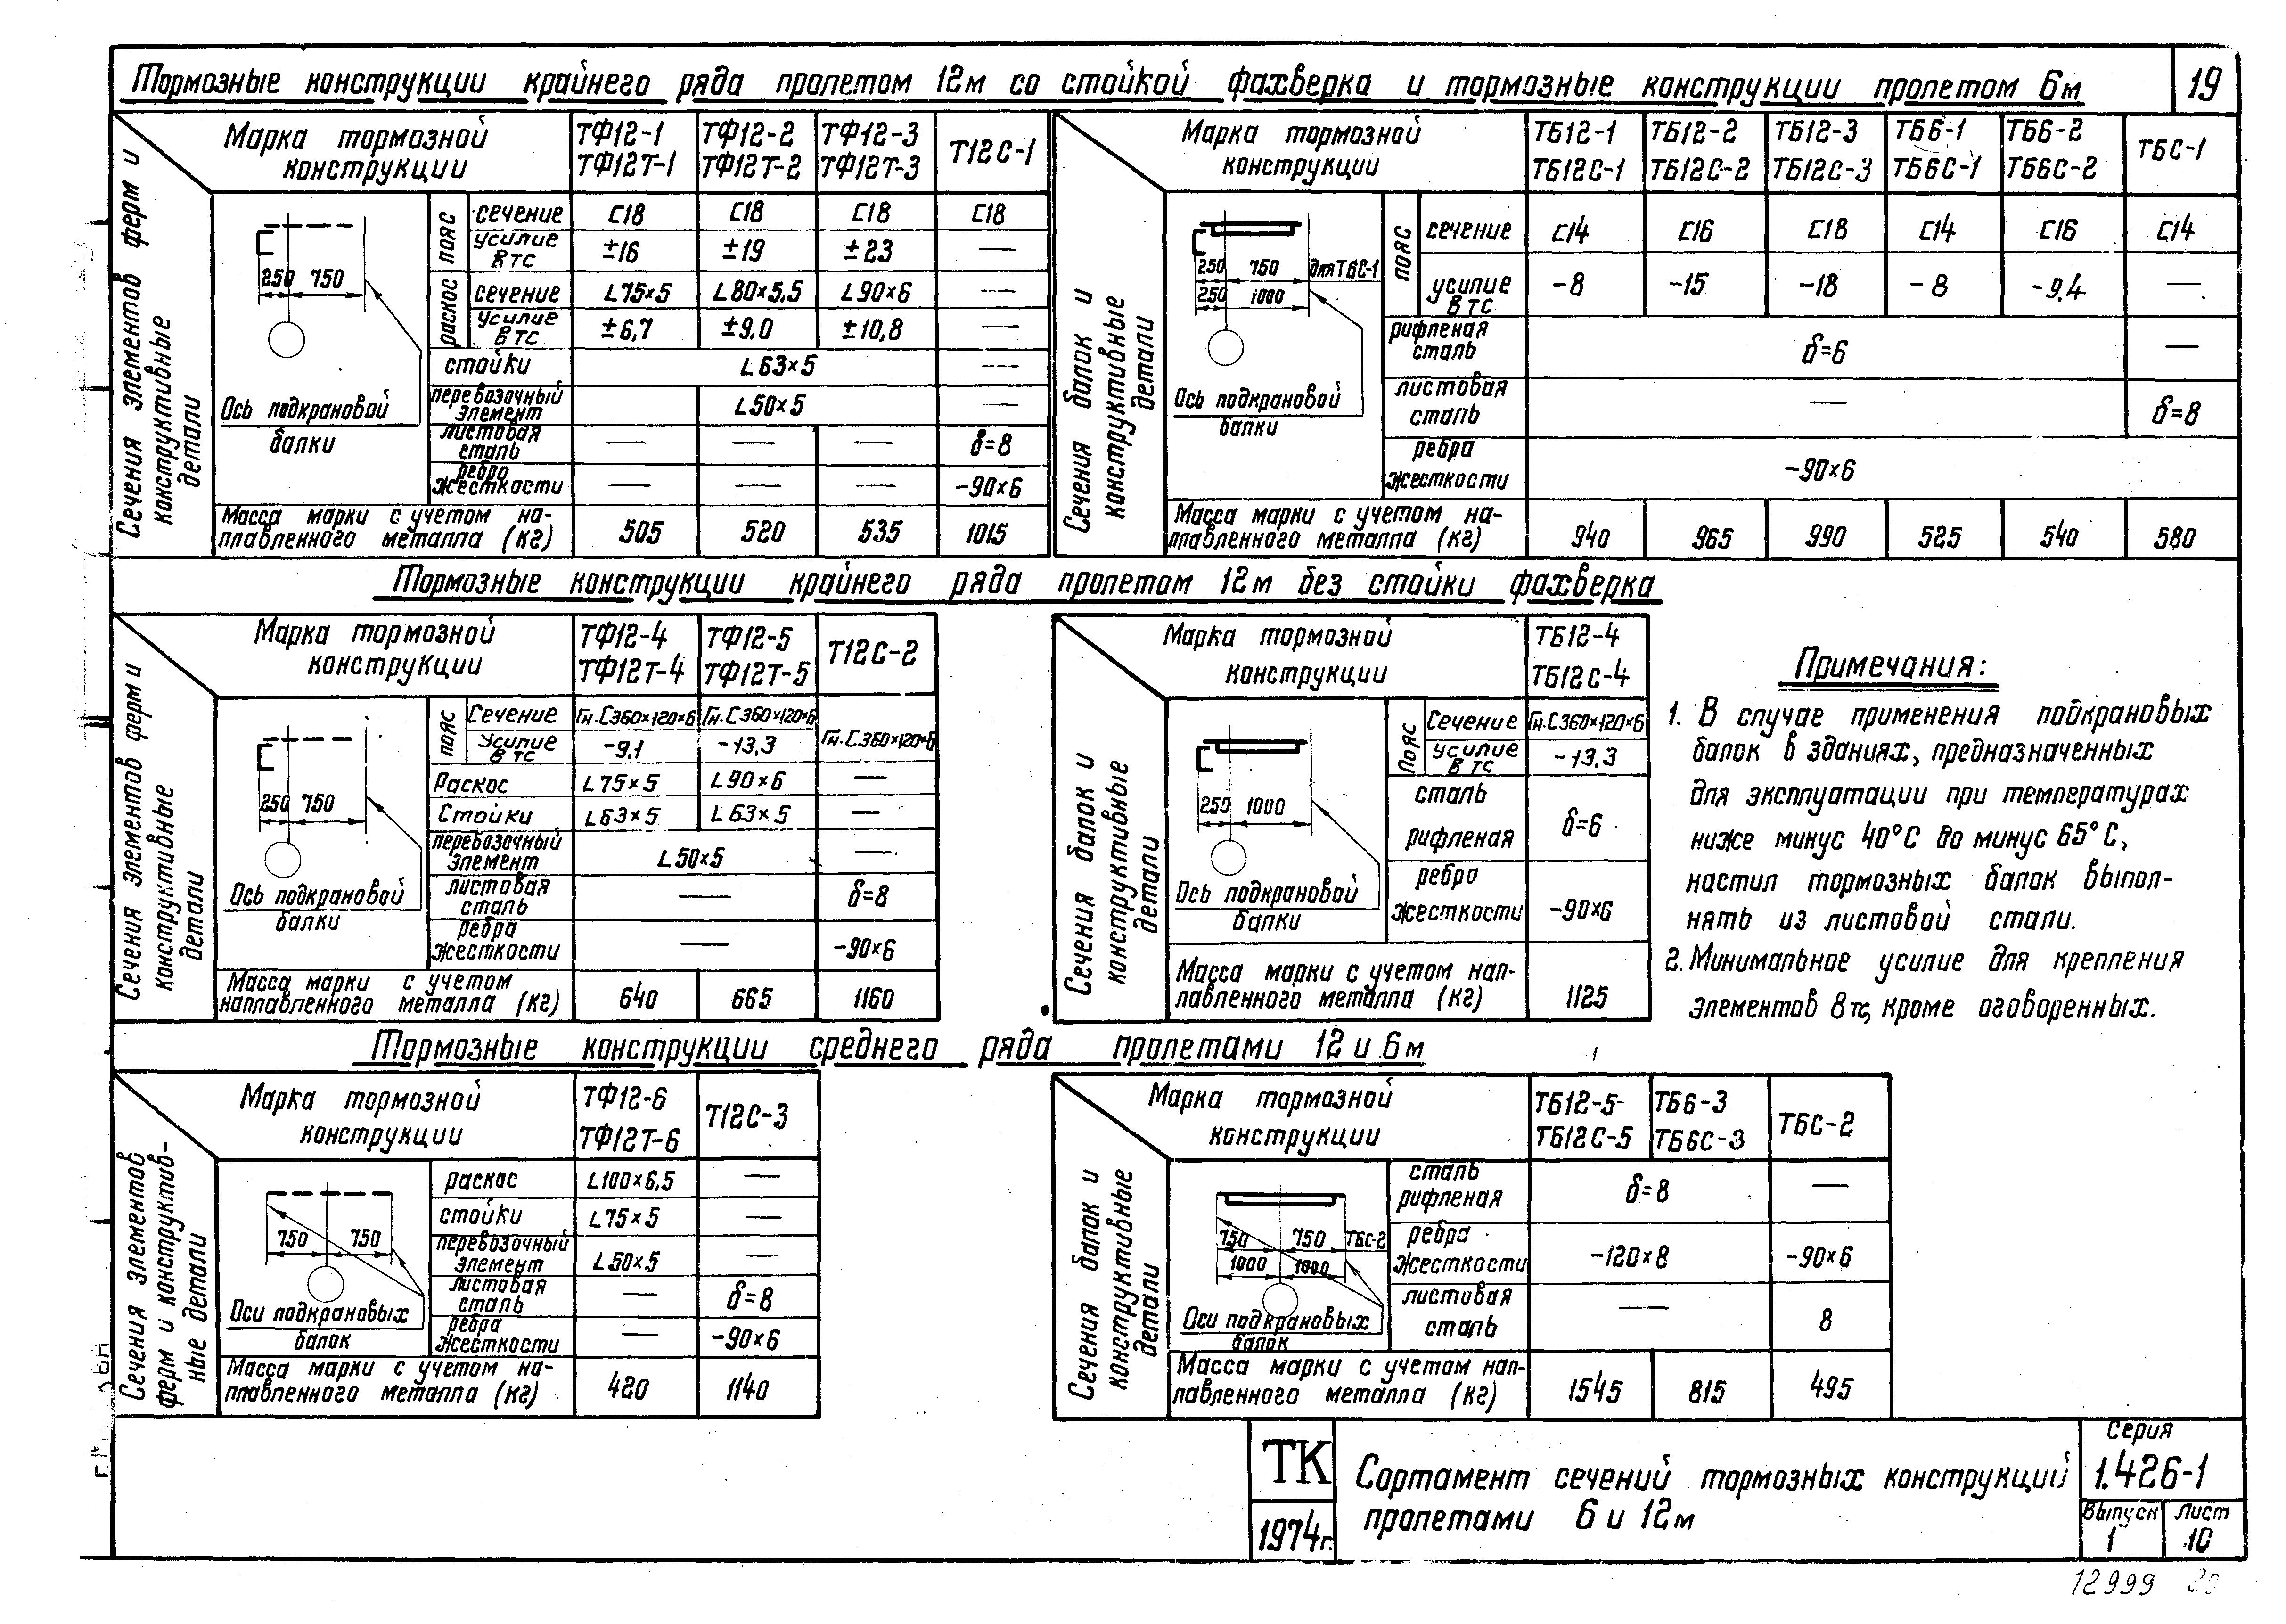 Тормозные конструкции крайнего ряда пролетом 12м со стойкой фахверка и тормозные конструкции пролетом 6м
19
Сечения элементов ферм и конструктивные детали
Марка тормозной конструкции
ТФ12-1 ТФ12-2 ТФ12-3 Т12С-1
ТФ12Т-1 ТФ12Т-2 ТФ12Т-3
250 750
Ось подкрановой
балки
пояс
сечение С18 С18 С18 С18
усилие в тс ±16 ±19 ±23 —
раскос
сечение L75×5 L80×5,5 L90×6 —
усилие в тс ±6,7 ±9,0 ±10,8 —
стойки L63×5 —
перевозочный элемент L50×5 —
листовая сталь — — — δ=8
ребра жесткости — — — -90×6
Масса марки с учетом на-
плавленного металла (кг) 505 520 535 1015
Сечения балок и конструктивные детали
Марка тормозной конструкции
ТБ12-1 ТБ12-2 ТБ12-3 ТБ6-1 ТБ6-2 ТБС-1
ТБ12С-1 ТБ12С-2 ТБ12С-3 ТБ6С-1 ТБ6С-2
250 750 для ТБС-1
250 1000
Ось подкрановой
балки
пояс
сечение С14 С16 С18 С14 С16 С14
усилие в тс -8 -15 -18 -8 -9,4 —
рифленая сталь δ=6 —
листовая сталь — δ=8
ребра жесткости -90×6
Масса марки с учетом на-
плавленного металла (кг) 940 965 990 525 540 580
Тормозные конструкции крайнего ряда пролетом 12м без стойки фахверка
Сечения элементов ферм и конструктивные детали
Марка тормозной конструкции
ТФ12-4 ТФ12-5 Т12С-2
ТФ12Т-4 ТФ12Т-5
250 750
Ось подкрановой
балки
пояс
Сечение Гн.С360×120×6 Гн.С360×120×6 Гн.С360×120×6
Усилие в тс -9,1 -13,3
Раскос L75×5 L90×6 —
Стойки L63×5 L63×5 —
перевозочный элемент L50×5 —
листовая сталь — δ=8
ребра жесткости — -90×6
Масса марки с учетом
наплавленного металла (кг) 640 665 1160
Сечения балок и конструктивные детали
Марка тормозной конструкции
ТБ12-4
ТБ12С-4
250 1000
Ось подкрановой
балки
Пояс
Сечение Гн.С360×120×6
Усилие в тс -13,3
сталь рифленая δ=6
ребра жесткости -90×6
Масса марки с учетом нап-
лавленного металла (кг) 1125
Примечания:
1. В случае применения подкрановых
балок в зданиях, предназначенных
для эксплуатации при температурах
ниже минус 40°С до минус 65°С,
настил тормозных балок выпол-
нять из листовой стали.
2. Минимальное усилие для крепления
элементов 8тс, кроме оговоренных.
Тормозные конструкции среднего ряда пролетами 12 и 6м
Сечения элементов ферм и конструктив-
ные детали
Марка тормозной конструкции
ТФ12-6 Т12С-3
ТФ12Т-6
750 750
Оси подкрановых
балок
раскос L100×6,5 —
стойки L75×5 —
перевозочный элемент L50×5 —
листовая сталь — δ=8
ребра жесткости — -90×6
Масса марки с учетом на-
плавленного металла (кг) 420 1140
Сечения балок и конструктивные детали
Марка тормозной конструкции
ТБ12-5 ТБ6-3 ТБС-2
ТБ12С-5 ТБ6С-3
750 750 ТБС-2
1000 1000
Оси подкрановых
балок
сталь рифленая δ=8 —
ребра жесткости -120×8 -90×6
листовая сталь — 8
Масса марки с учетом нап-
лавленного металла (кг) 1545 815 495
ТК
1974г.
Сортамент сечений тормозных конструкций
пролетами 6 и 12м
Серия
1.426-1
Выпуск 1
Лист 10
12999